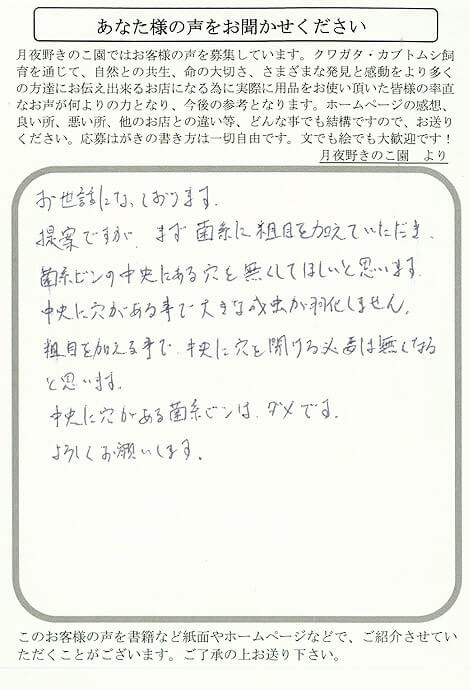 あなた様の声をお聞かせください
月夜野きのこ園ではお客様の声を募集しています。クワガタ・カブトムシ飼
育を通じて、自然との共生、命の大切さ、さまざまな発見と感動をより多く
の方達にお伝え出来るお店になる為に実際に用品をお使い頂いた皆様の率直
なお声が何よりの力となり、今後の参考となります。ホームページの感想、
良い所、悪い所、他のお店との違い等、どんな事でも結構ですので、お送り
ください。応募はがきの書き方は一切自由です。文でも絵でも大歓迎です！
月夜野きのこ園　より
お世話になっております。
提案ですが、まず菌糸に粗目を加えていただき、
菌糸ビンの中央にある穴を無くしてほしいと思います。
中央に穴がある事で大きな成虫が羽化しません。
粗目を加える事で、中央に穴を開ける必要は無くなる
と思います。
中央に穴がある菌糸ビンは、ダメです。
よろしくお願いします。
このお客様の声を書籍など紙面やホームページなどで、ご紹介させてい
ただくことがございます。ご了承の上お送り下さい。